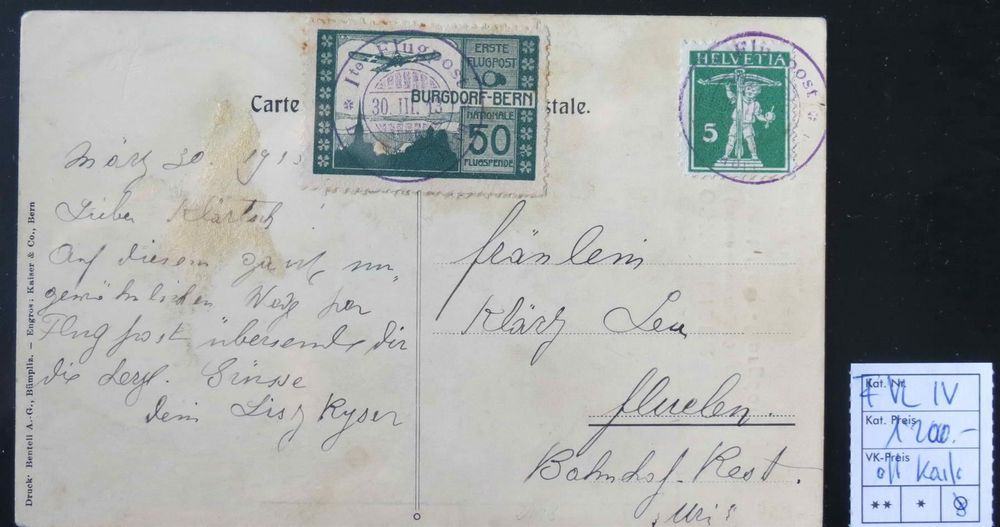 Carte
stale.
ERSTE
FLUGPOST
BURGDORF-BERN
NATIONALE
50
FLUGSPENDE
Ite Flugpost
30. III. 13
HELVETIA
5
Flugpost
März 30. 1913
Lieber Klärtsch!
Auf diesem ganz un
gewöhnlichen Weg per
Flugpost übersende dir
die herzl. Grüsse
dein Lisy Kyser
Fräulein
Kläry Leu
Fluelen.
Bahnhof-Rest.
"Uri"
Druck: Benteli A.-G., Bümpliz. — Engros: Kaiser & Co., Bern
Kat. Nr.
IV
Kat. Preis
1200.-
VK-Preis
auf Karte
** *